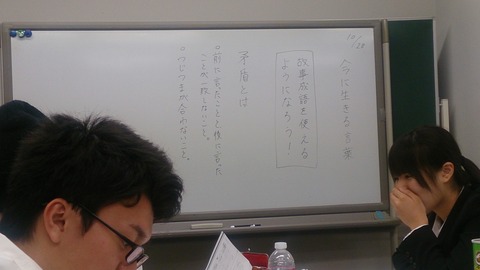 10/28
今に生きる言葉
故事成語を使える
ようになろう！
矛盾とは
○前に言ったことと後に言った
ことが一致しないこと。
○つじつまが合わないこと。